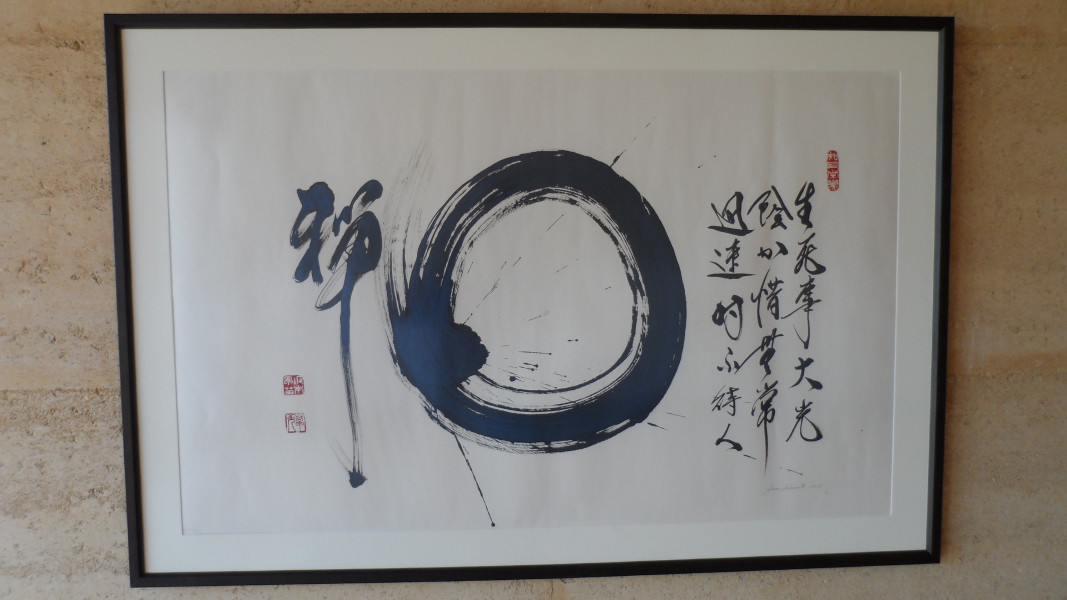 生死事大光
陰可惜無常
迅速時不待人
禪